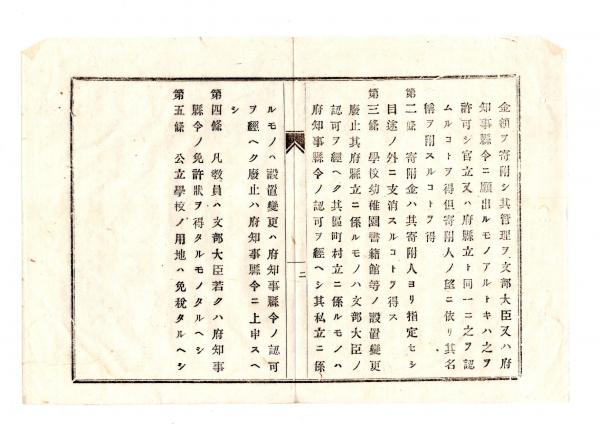 金額ヲ寄附シ其管理ヲ文部大臣又ハ府
知事縣令ニ願出ルモノアルトキハ之ヲ
許可シ官立又ハ府縣立ト同一ニ之ヲ認
ムルコトヲ得但寄附人ノ望ニ依リ其名
稱ヲ附スルコトヲ得
第二條 寄附金ハ其寄附人ヨリ指定セシ
目途ノ外ニ支消スルコトヲ得ス
第三條 學校幼稚園書籍館等ノ設置變更
廢止其府縣立ニ係ルモノハ文部大臣ノ
認可ヲ經ヘク其區町村立ニ係ルモノハ
府知事縣令ノ認可ヲ經ヘシ其私立ニ係
二
ルモノハ設置變更ハ府知事縣令ノ認可
ヲ經ヘク廢止ハ府知事縣令ニ上申スヘ
シ
第四條 凡敎員ハ文部大臣若クハ府知事
縣令ノ免許狀ヲ得タルモノタルヘシ
第五條 公立學校ノ用地ハ免稅タルヘシ